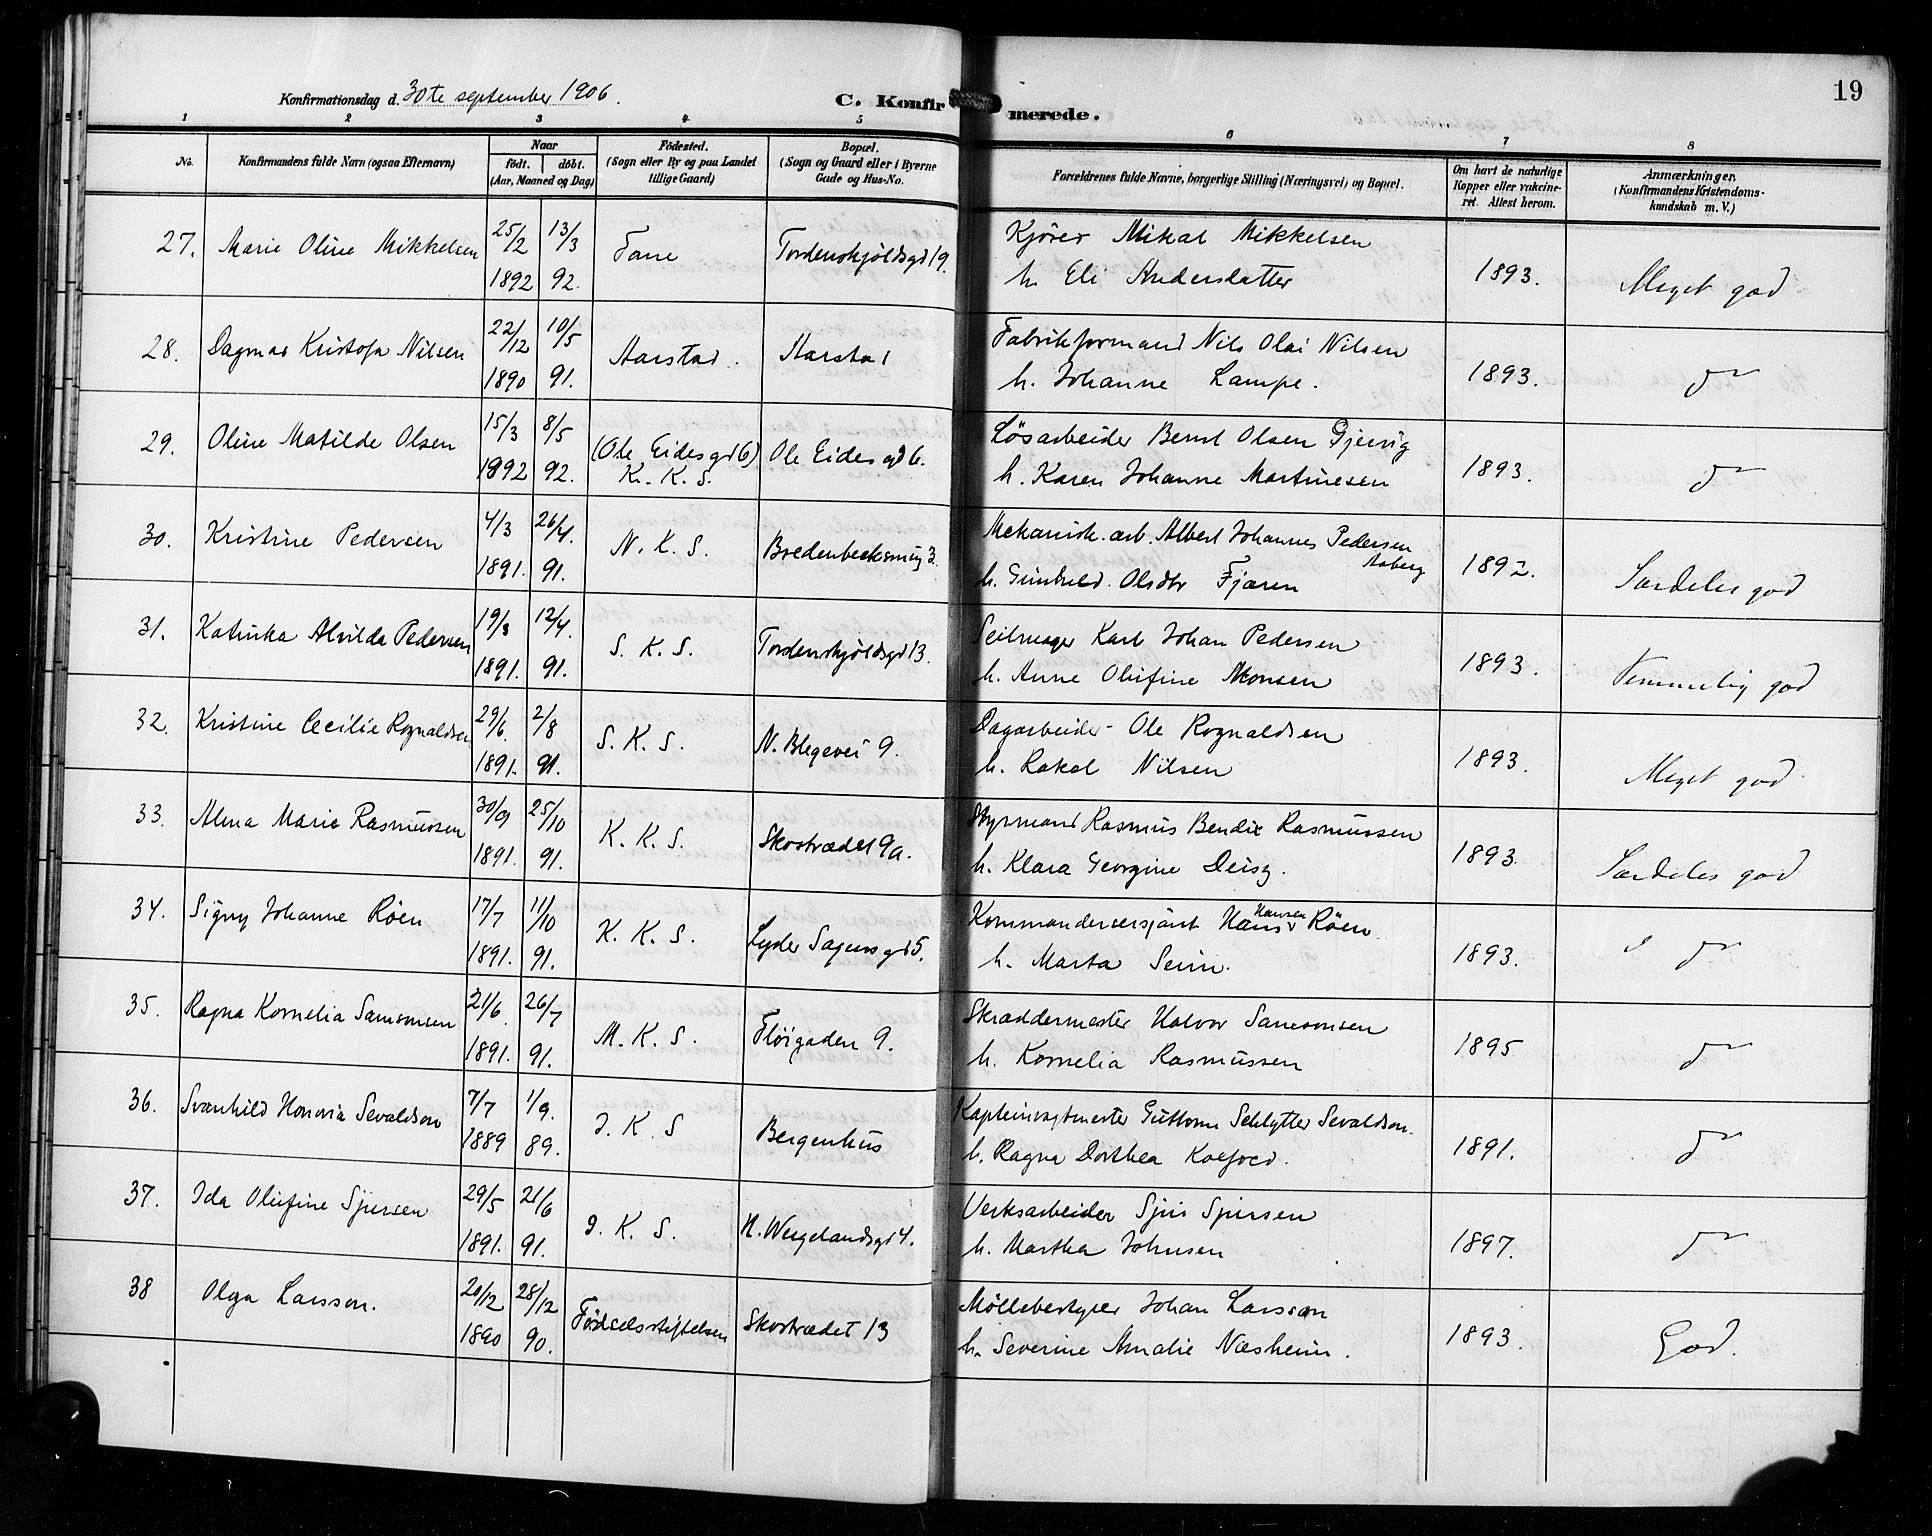 19
Konfirmationsdag d. 30te september 1906.
C. Konfirmerede.
1 2 3 4 5 6 7 8
No. Konfirmandens fulde Navn (ogsaa Efternavn) Naar født. døbt. (Aar, Maaned og Dag) Fødested. (Sogn eller By og paa Landet tillige Gaard) Bopæl. (Sogn og Gaard eller i Byerne Gade og Hus-No. Forældrenes fulde Navne, borgerlige Stilling (Næringsvei) og Bopæl. Om havt de naturlige Kopper eller vakcineret. Attest herom. Anmærkninger. (Konfirmandens Kristendomskundskab m. V.)
27. Marie Oline Mikkelsen 25/2 13/3 Fane Tordenskjöldsgd 19. Kjörer Mikal Mikkelsen
1892 92. h. Eli Andersdatter 1893. Meget god
28. Dagmar Kristofa Nilsen 22/12 10/5 Aarstad. Aarstad Fabrikformand Nils Olai Nilsen
1890 91. h. Johanne Lampe. 1893. do
29. Oline Matilde Olsen 15/3 8/5 (Ole Eidesgd 6) Ole Eidesgd 6. Løsarbeider Bernt Olsen Gjervig
1892 92. K. K. S. h. Karen Johanne Martinesen 1893. do
30. Kristine Pedersen 4/3 26/4. N. K. S. Bredenbecksmug 3. Mekanisk. arb. Albert Johannes Pedersen Aaberg
1891. 91. h. Gunhild Olsdtr Fjæren 1892. Særdeles god
31. Katinka Alvilda Pedersen 19/3 12/4. S. K. S. Tordenskjöldsgd 13. Seilmager Karl Johan Pedersen
1891. 91. h. Anne Olufine Monsen 1893. Temmelig god
32. Kristine Cecilie Rognaldsen 29/6. 2/8 S. K. S. N. Blegevei 9. Dagarbeider Ole Rognaldsen
1891. 91. h. Rakel Nilsen 1893. Meget god
33. Alma Marie Rasmussen 30/9 25/10 K. K. S. Skostrædet 9a. Styrmand Rasmus Bendix Rasmussen
1891. 91. h. Klara Georgine Deisz. 1893. Særdeles god
34. Signy Johanne Röen 17/7 11/10 K. K. S. Lyder Sagensgd 5. Kommandersersjant Hans Hansen Röen
1891. 91. h. Marta Seim. 1893. do
35. Ragna Kornelia Samsonsen 21/6. 26/7 M. K. S. Flöigaden 9. Skræddermester Halvor Samsonsen
1891. 91. h. Kornelia Rasmussen 1895 do
36. Svanhild Honoria Sevaldson 7/7 1/9. J. K. S Bergenhus Kapteinvagtmester Guttorm Schlytter Sevaldson.
1889 89. h. Ragna Dorthea Koefoed. 1891. do
37. Ida Olufine Sjursen 29/5 21/6 J. K. S. H. Wergelandsgd 4. Verksarbeider Sjur Sjursen
1891. 91. h. Martha Johnsen 1897. do
38 Olga Larsson. 20/12 28/12 Fødselsstiftelsen Skostrædet 13 Möllebestyrer Johan Larsson
1890 90. h. Severine Amalie Næsheim. 1893. God.